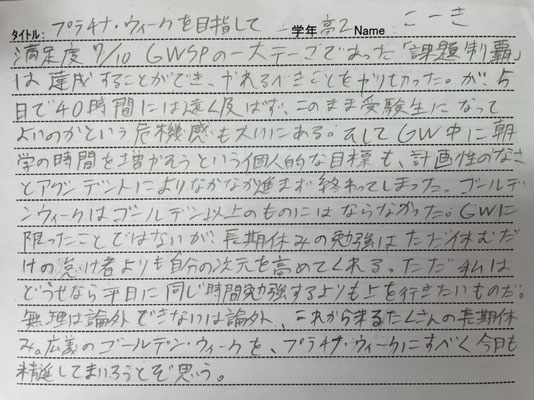 タイトル: プラチナ・ウィークを目指して 学年 高2 Name こーき
満足度 9/10 GWSPの一大テーマであった「課題制覇」
は達成することができ、やれるべきことをやりきった。が、5
日で40時間には遠く及ばず、このまま受験生になって
よいのかという危機感も大いにある。そしてGW中に朝
学の時間を増やそうという個人的な目標も、計画性のなさ
とアクシデントによりなかなか進まず終わってしまった。ゴールデ
ンウィークはゴールデン以上のものにはならなかった。GWに
限ったことではないが、長期休みの勉強はただ休むだ
けの怠け者よりも自分の次元を高めてくれる。ただ私は
どうせなら平日に同じ時間勉強するよりも上を行きたいものだ。
無理は論外できないは論外、これから来るたくさんの長期休
み。広義のゴールデン・ウィークを、プラチナ・ウィークにすべく今日も
精進してまいろうとぞ思う。